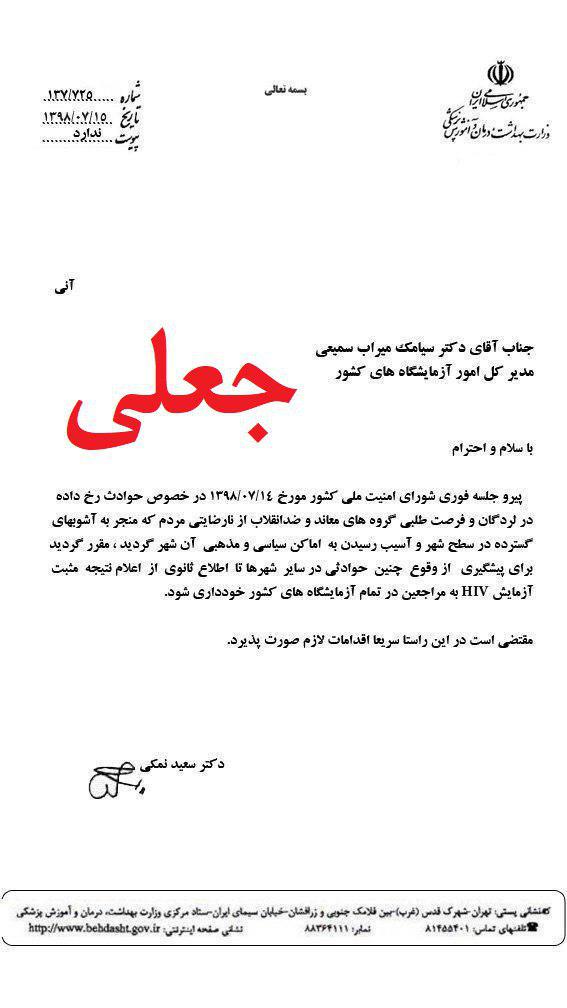 بسمه تعالی
جمهوری اسلامی ایران
وزارت بهداشت درمان و آموزش پزشکی
شماره ۱۳۷/۷۲۵
تاریخ ۱۳۹۸/۰۷/۱۵
پیوست ندارد
آنی
جناب آقای دکتر سیامک میراب سمیعی
مدیر کل امور آزمایشگاه های کشور
جعلی
با سلام و احترام
پیرو جلسه فوری شورای امنیت ملی کشور مورخ ۱۳۹۸/۰۷/۱٤ در خصوص حوادث رخ داده
در لردگان و فرصت طلبی گروه های معاند و ضدانقلاب از نارضایتی مردم که منجر به آشوبهای
گسترده در سطح شهر و آسیب رسیدن به اماکن سیاسی و مذهبی آن شهر گردید ، مقرر گردید
برای پیشگیری از وقوع چنین حوادثی در سایر شهرها تا اطلاع ثانوی از اعلام نتیجه مثبت
آزمایش HIV به مراجعین در تمام آزمایشگاه های کشور خودداری شود.
مقتضی است در این راستا سریعا اقدامات لازم صورت پذیرد.
دکتر سعید نمکی
نشانی پستی: تهران-شهرک قدس (غرب)-بین فلامک جنوبی و زرافشان-خیابان سیمای ایران-ستاد مرکزی وزارت بهداشت، درمان و آموزش پزشکی
تلفنهای تماس: ۸۱۴۵۵۴۰۱ نمابر: ۸۸۳۶۴۱۱۱ نشانی صفحه اینترنتی: http://www.behdasht.gov.ir